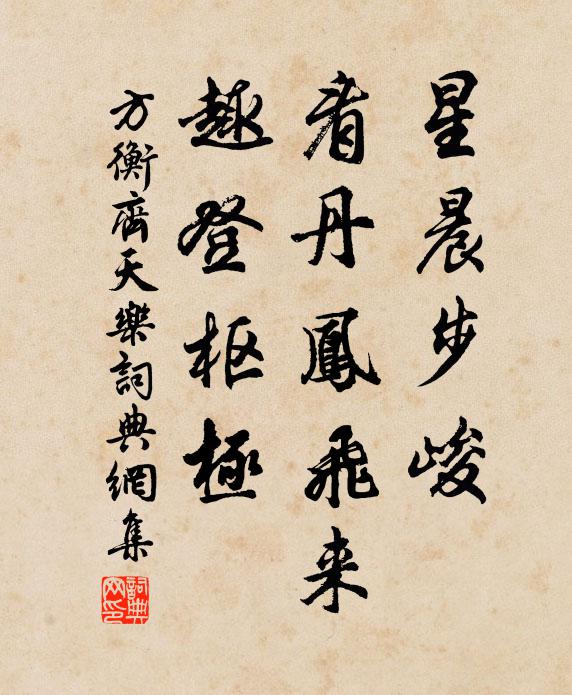 星晨步峻
看丹鳳飛来
趣登枢極
方衡齊天樂詞典網集
詞典网印